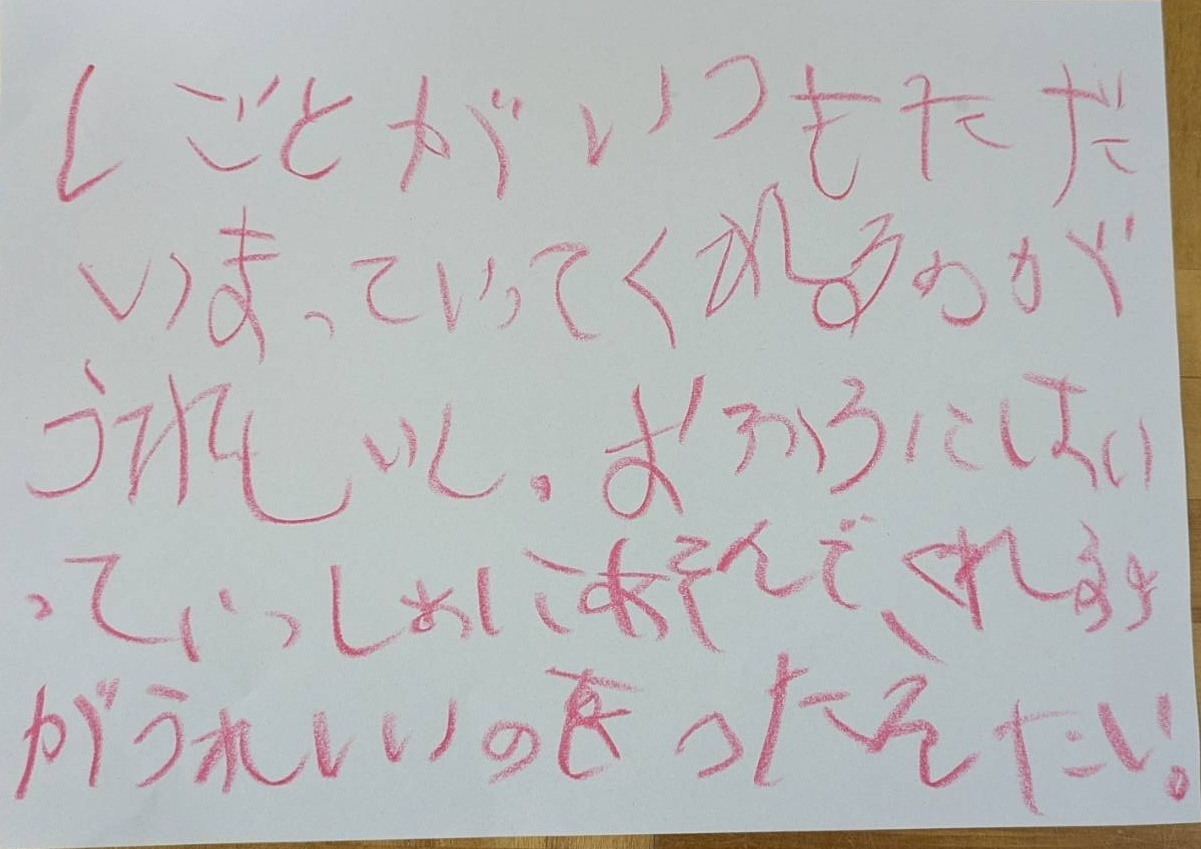 しごとがいつもただ
いまっていってくれるのが
うれしいし.おふろにはい
っていっしょに あそんでくれるの
がうれしいのを つたえたい。